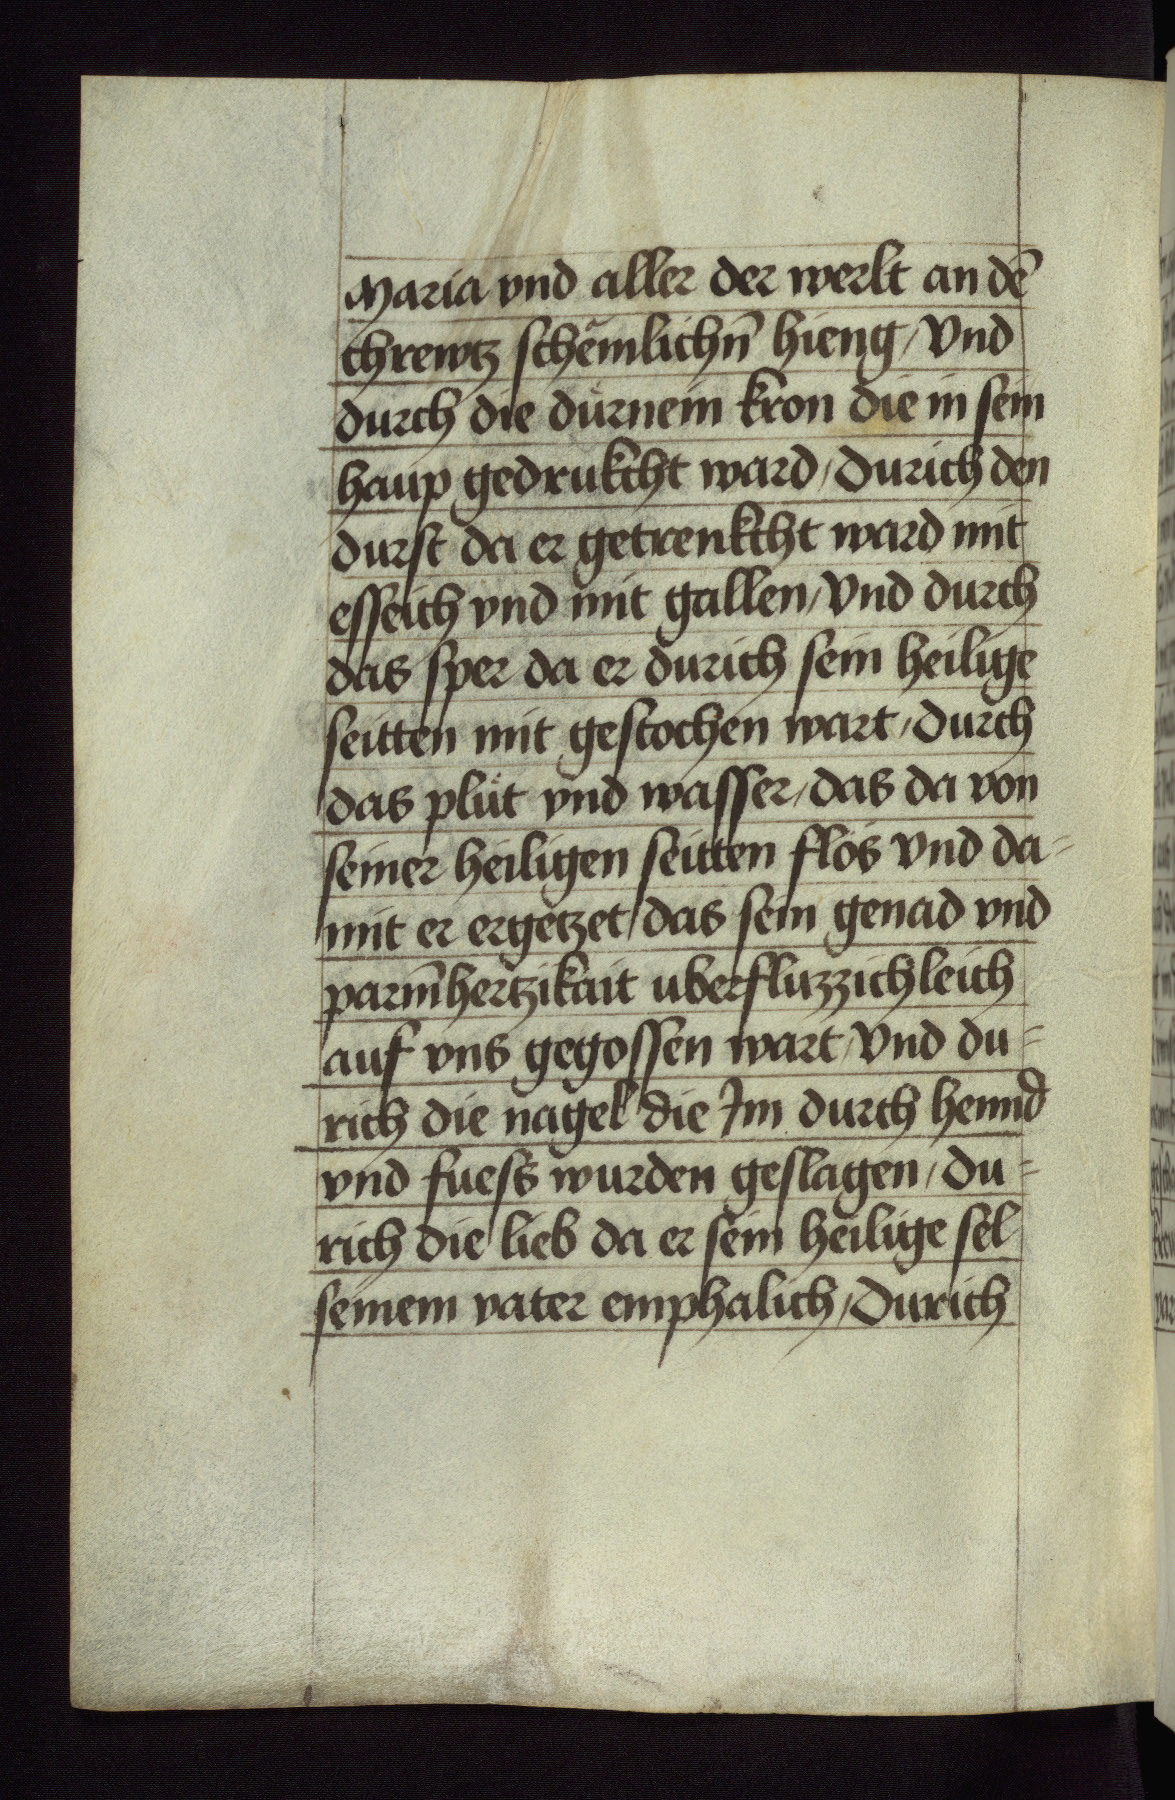 Maria vnd aller der werlt an dē
chrewtz schëmlichn̄ hieng / Vnd
durch die dürnein kron die in sein
haup gedrukcht ward / Durich den
durst da er getrenkcht ward mit
esseich vnd mit gallen / Vnd durch
das sper da er durich sein heilige
seitten mit gestochen wart / durch
das plüt vnd wasser / das da von
seiner heiligen seitten flos vnd da-
mit er ergetzet / das sein genad vnd
parm̄hertzikait uberfluzzichleich
auf vns gegossen wart / Vnd du-
rich die nagel die Im durch hennd
vnd fuess wurden geslagen / Du-
rich die lieb da er sein heilige sel
seinem vater emphalich / Durich